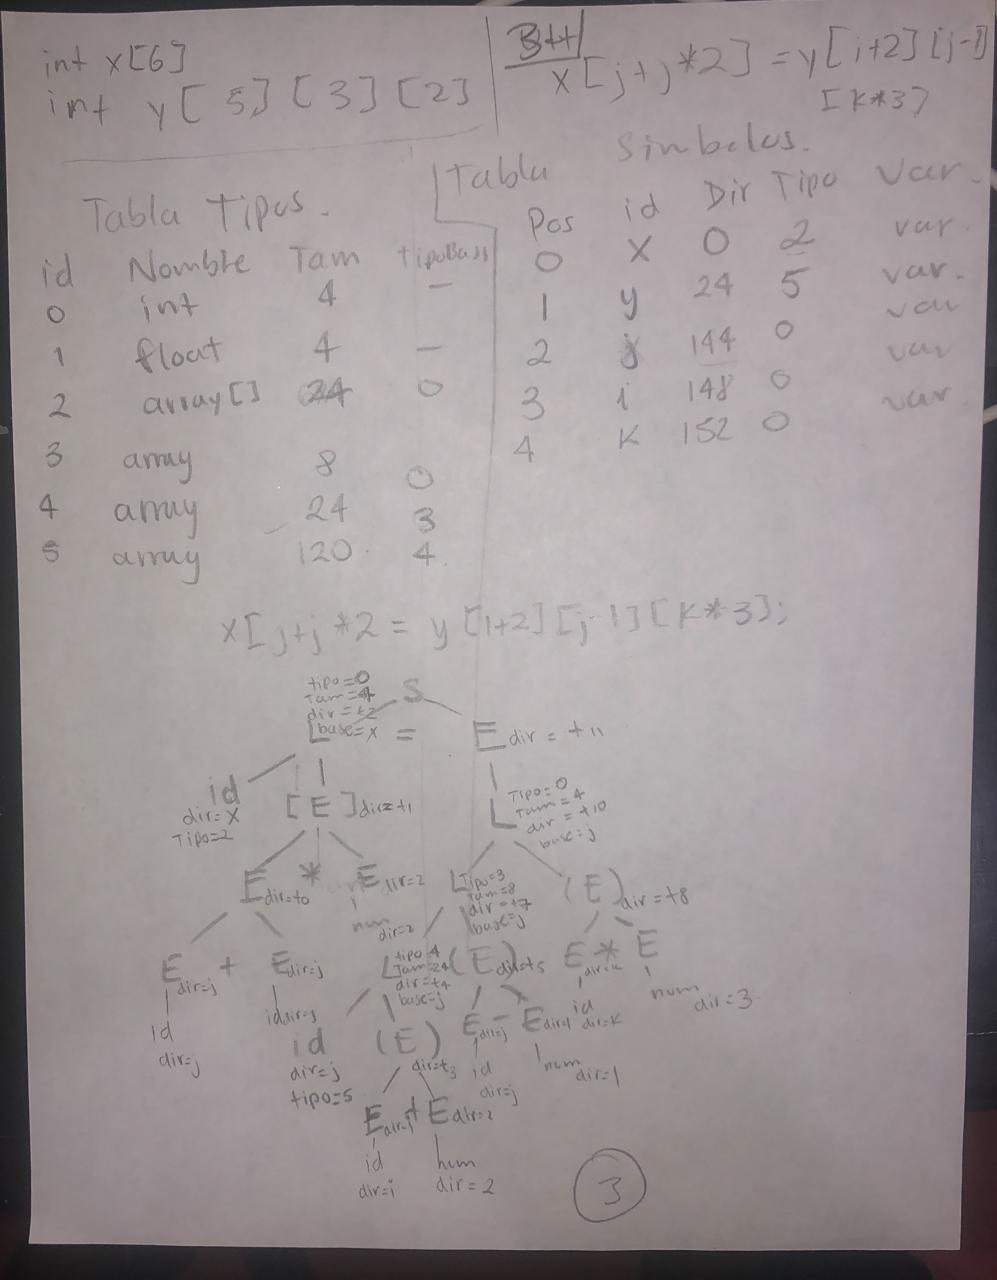 int x[6]
int y[5][3][2]
3++
x[j+j*2] = y[i+2][j-1]
[k*3]
Tabla Tipos.
id Nombre Tam tipoBase
0 int 4 -
1 float 4 -
2 array[] 24 0
3 array 8 0
4 array 24 3
5 array 120. 4
Tabla Simbolos.
Pos id Dir Tipo Var.
0 x 0 2 var.
1 y 24 5 var.
2 j 144 0 var
3 i 148 0 var
4 k 152 0 var.
x[j+j*2 = y[i+2][j-1][k*3];
S
tipo=0
Tam=4
dir=t2
L base=x = E dir=t11
id
dir=x
Tipo=2
[E] dir=t1
L
Tipo=0
Tam=4
dir=t10
base=j
E dir=t0 * E dir=2
num
dir=2
L Tipo=3
Tam=8
dir=t7
base=j
(E) dir=t8
E dir=j + E dir=j
id
dir=j
id dir=j
L tipo 4
Tam=24
dir=t4
base=j
(E) dir=t5
E dir=k * E
id
dir=k
num
dir=3
id
dir=j
tipo=5
(E)
dir=t3
E dir=j - E dir=1
id
dir=j
num
dir=1
E dir=i + E dir=2
id
dir=i
num
dir=2
3